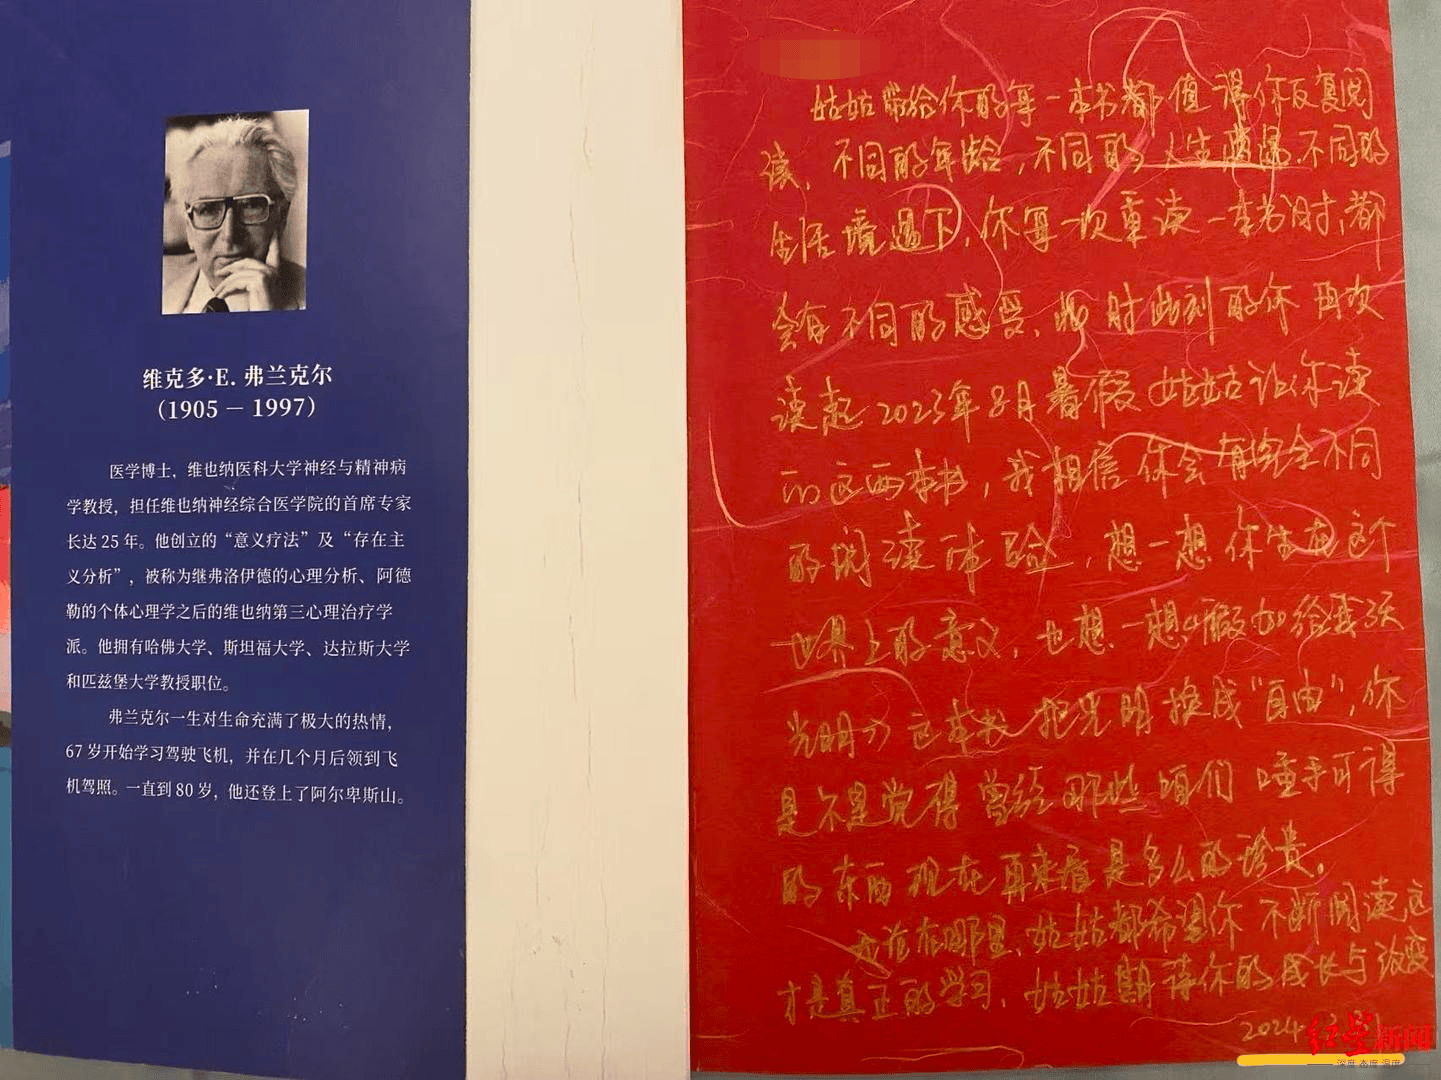 维克多·E. 弗兰克尔
（1905 — 1997）
医学博士，维也纳医科大学神经与精神病
学教授，担任维也纳神经综合医学院的首席专家
长达 25 年。他创立的“意义疗法”及“存在主
义分析”，被称为继弗洛伊德的心理分析、阿德
勒的个体心理学之后的维也纳第三心理治疗学
派。他拥有哈佛大学、斯坦福大学、达拉斯大学
和匹兹堡大学教授职位。
弗兰克尔一生对生命充满了极大的热情，
67 岁开始学习驾驶飞机，并在几个月后领到飞
机驾照。一直到 80 岁，他还登上了阿尔卑斯山。
姑姑带给你的每一本书都值得你反复阅
读，不同的年龄，不同的人生 不同的
生活境遇下，你每一次重读一本书时，都
会有不同的感受，此时此刻的你再次
读起2023年8月暑假姑姑让你读
的这两本书，我相信你会有完全不同
的阅读体验，想一想你生在这个
世界上的意义，也想一想《假如给我三天
光明》这本书把光明换成“自由”，你
是不是觉得曾经那些 们唾手可得
的东西现在再来看是多么的珍贵。
在哪里，姑姑都希望你不断阅读这
才是真正的学习，姑姑期待你的成长与
2024
红星新闻
深度 态度 温度